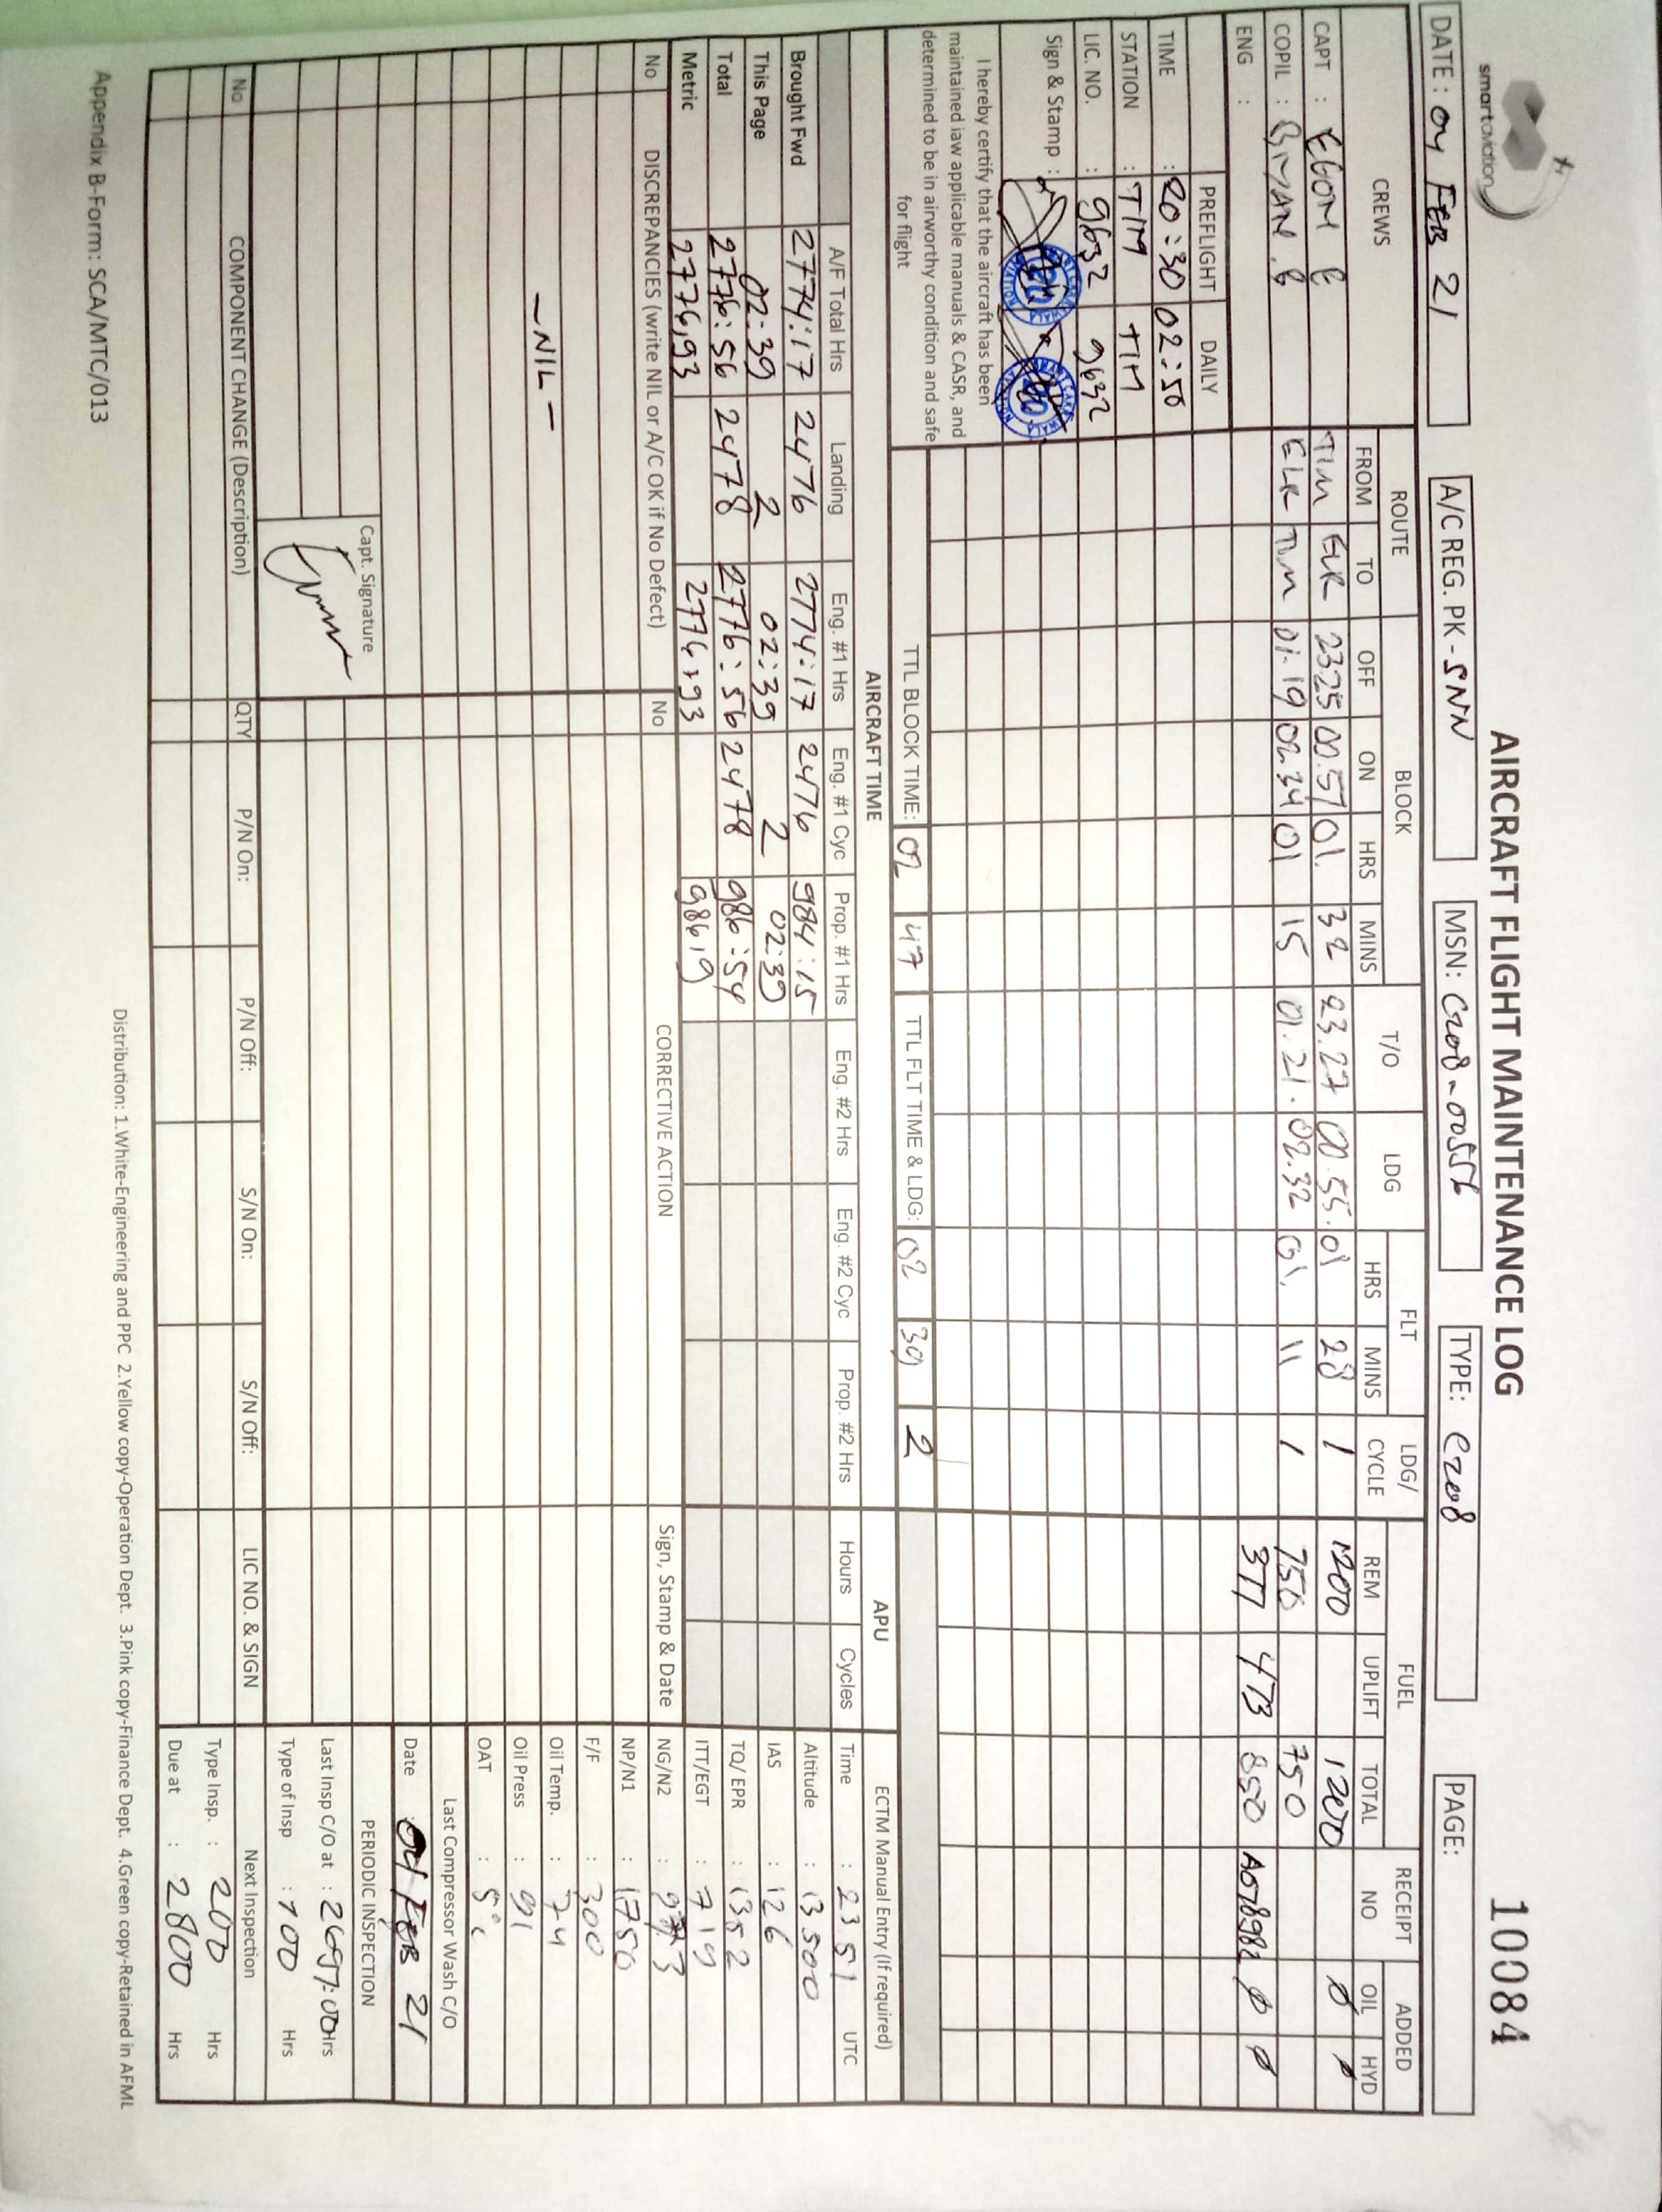 smartaviation
AIRCRAFT FLIGHT MAINTENANCE LOG
10084
DATE : 04 FEB 21
A/C REG. PK - SNN
MSN: C208-00556
TYPE: C208
PAGE:
CREWS ROUTE BLOCK T/O LDG FLT LDG/ CYCLE FUEL RECEIPT NO ADDED
FROM TO OFF ON HRS MINS HRS MINS REM UPLIFT TOTAL OIL HYD
CAPT : EGON E TIM ELR 2325 00.57 01. 32 23.27 00.55. 01 28 1 1200 1200 Ø Ø
COPIL : BRYAN. B ELR TIM 01.19 02.34 01 15 01.21. 02.32 01. 11 1 750 750
ENG : 377 473 850 A078982 Ø Ø
PREFLIGHT DAILY
TIME : 20:30 02:50
STATION : TIM TIM
LIC. NO. : 9632 9632
Sign & Stamp :
I hereby certify that the aircraft has been
maintained iaw applicable manuals & CASR, and
determined to be in airworthy condition and safe
for flight
TTL BLOCK TIME: 02 47 TTL FLT TIME & LDG: 02 39 2
AIRCRAFT TIME APU ECTM Manual Entry (If required)
A/F Total Hrs Landing Eng. #1 Hrs Eng. #1 Cyc Prop. #1 Hrs Eng. #2 Hrs Eng. #2 Cyc Prop. #2 Hrs Hours Cycles Time : 2351 UTC
Brought Fwd 2774:17 2476 2774:17 2476 984:15 Altitude : 13500
This Page 02:39 2 02:39 2 02:39 IAS : 126
Total 2776:56 2478 2776:56 2478 986:54 TQ/ EPR : 1352
Metric 2776,93 2776,93 986,9 ITT/EGT : 719
No DISCREPANCIES (write NIL or A/C OK if No Defect) No CORRECTIVE ACTION Sign, Stamp & Date NG/N2 :
NP/N1 : 1750
F/F : 300
- NIL - Oil Temp. : 74
Oil Press : 91
OAT : 5°c
Last Compressor Wash C/O
Date 04 FEB 21
Capt. Signature
PERIODIC INSPECTION
Last Insp C/O at : 2697:00 Hrs
Type of Insp : 100 Hrs
No COMPONENT CHANGE (Description) QTY P/N On: P/N Off: S/N On: S/N Off: LIC NO. & SIGN Next Inspection
Type Insp. : 200 Hrs
Due at : 2800 Hrs
Distribution: 1.White-Engineering and PPC 2.Yellow copy-Operation Dept. 3.Pink copy-Finance Dept. 4.Green copy-Retained in AFML
Appendix B-Form: SCA/MTC/013